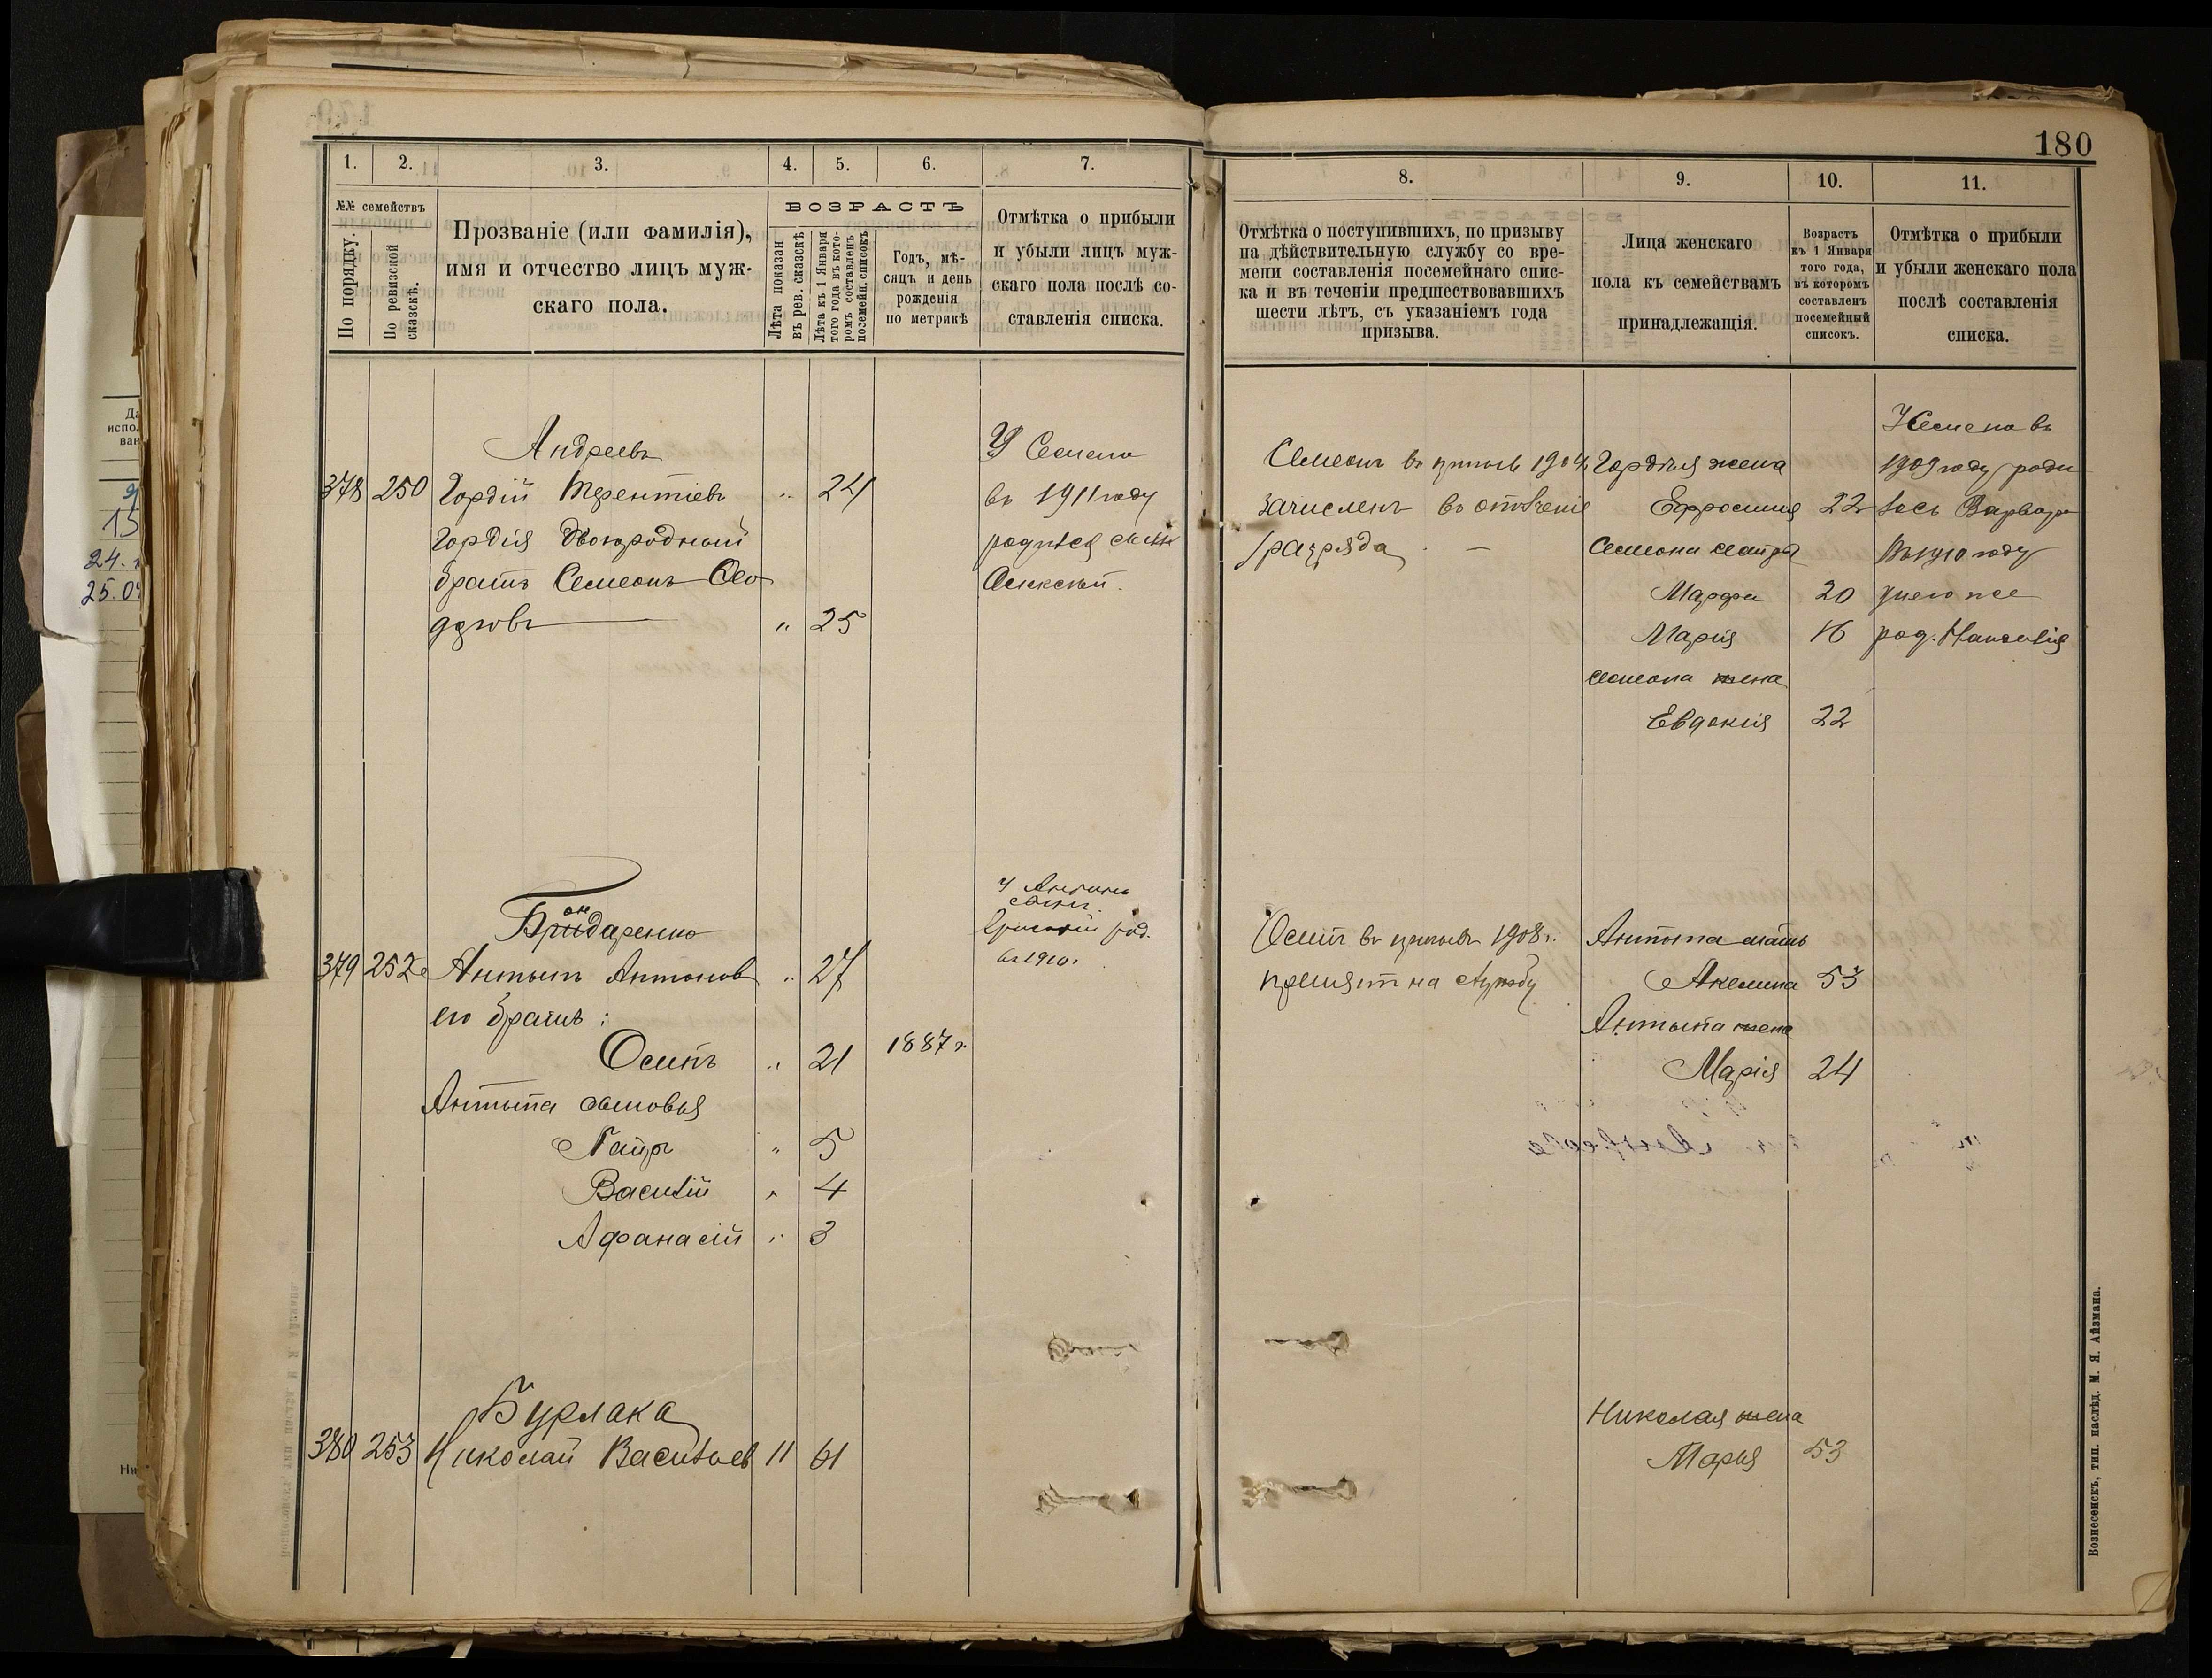 180
1. 2. 3. 4. 5. 6. 7.
№№ семействъ
По порядку.
По ревизской сказскѣ.
Прозваніе (или фамилія),
имя и отчество лицъ муж-
скаго пола.
ВОЗРАСТЪ
Лѣта показан
въ рев. сказскѣ
Лѣта къ 1 Января
того года въ кото-
ромъ составленъ
посемейн. списокъ.
Годъ, мѣ-
сяцъ и день
рожденія
по метрикѣ
Отмѣтка о прибыли
и убыли лицъ муж-
скаго пола послѣ со-
ставленія списка.
Андреевъ
378 250 Гордій Терентіевъ " 24
Гордія двоюродный
братъ Семеонъ Ѳео
доровъ " 25
У Семена
въ 1911 году
родился сынъ
Алексѣй.
Бондаренко
379 252 Антипъ Антоновъ " 27
его братъ:
Осипъ " 21 1887 г.
Антипа сыновья
Петръ " 5
Василій " 4
Афанасій " 3
У Антипа
сынъ
Григорій род.
въ 1910 г.
Бурлака
380 253 Николай Васильев 11 61
8. 9. 10. 11.
Отмѣтка о поступившихъ, по призыву
на дѣйствительную службу со вре-
мени составленія посемейнаго спис-
ка и въ теченіи предшествовавшихъ
шести лѣтъ, съ указаніемъ года
призыва.
Лица женскаго
пола къ семействамъ
принадлежащія.
Возрастъ
къ 1 Января
того года,
въ которомъ
составленъ
посемейный
списокъ.
Отмѣтка о прибыли
и убыли женскаго пола
послѣ составленія
списка.
Семеонъ въ призывъ 1904
зачисленъ въ ополченіе
1 разряда
Гордія жена
Ефросинія 22
Семеона сестра
Марфа 20
Марія 16
Семеона жена
Евдокія 22
У Семена въ
1909 году роди
лась Варвара
Въ 1910 году
у него же
род. Наталія
Осипъ въ призывъ 1908 г.
принятъ на службу
Антипа мать
Акелина 53
Антипа жена
Марія 24
Николая жена
Марья 53
Вознесенскъ, тип. наслѣд. М. Я. Айзмана.